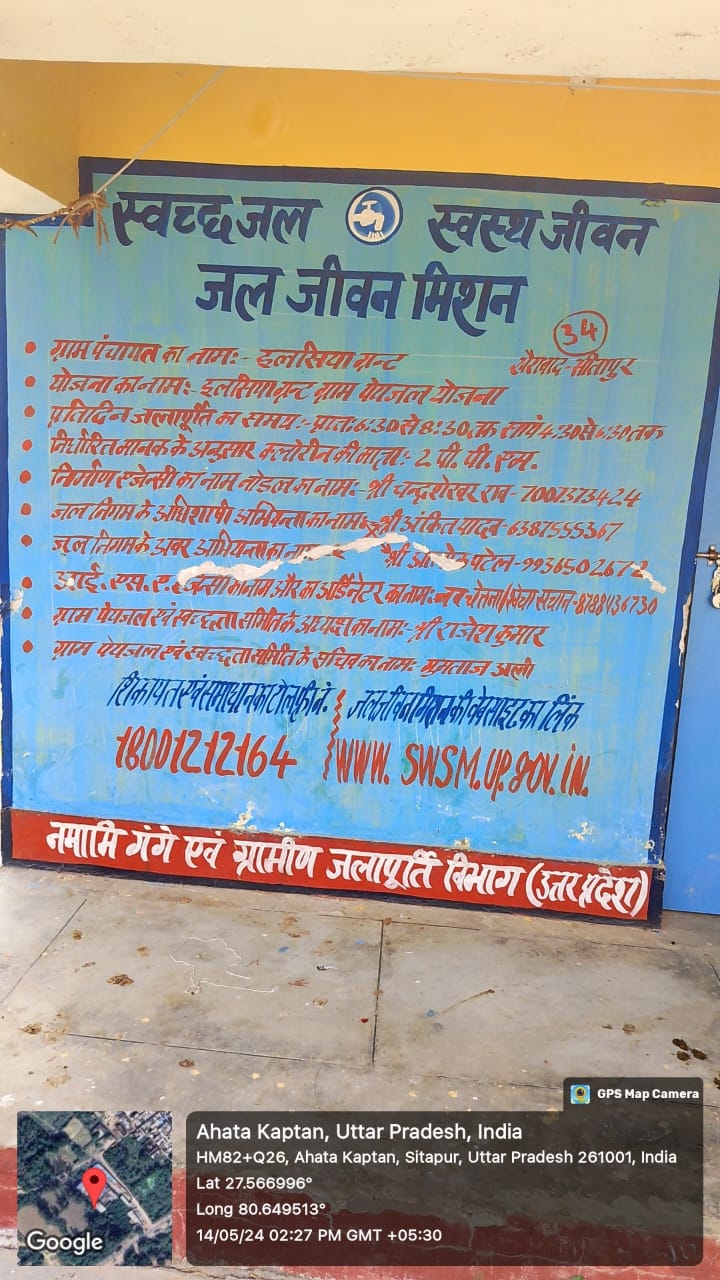 स्वच्छ जल स्वस्थ जीवन
जल जीवन मिशन
34
ग्राम पंचायत का नाम:- इलसिया ग्रन्ट खैराबाद-सीतापुर
योजना का नाम:- इलसिया ग्रन्ट ग्राम पेयजल योजना
प्रतिदिन जलापूर्ति का समय:- प्रातः 6:30 से 8:30 तक सायं 4:30 से 6:30 तक
निर्धारित मानक के अनुसार क्लोरीन की मात्रा:- 2 पी. पी. एम.
निर्माण एजेन्सी का नाम नोडल का नाम:- श्री चन्द्रशेखर राव-7007373424
जल निगम के अधिशाषी अभियन्ता का नाम श्री अंकित यादव-6387555367
जल निगम के अवर अभियन्ता का नाम श्री पटेल-9936502672
आई. एस. ए. एजेन्सी का नाम और का आर्डिनेटर का नाम:- नव चेतना/ -8188436730
ग्राम पेयजल एवं स्वच्छता समिति के अध्यक्ष का नाम:- श्री राजेश कुमार
ग्राम पेयजल एवं स्वच्छता समिति के सचिव का नाम: मुमताज अली
शिकायत एवं समाधान का टोल फ्री नं. जल जीवन मिशन की वेबसाइट का लिंक
18001212164 WWW. SWSM.UP.gov.in.
नमामि गंगे एवं ग्रामीण जलापूर्ति विभाग (उत्तर प्रदेश)
GPS Map Camera
Ahata Kaptan, Uttar Pradesh, India
HM82+Q26, Ahata Kaptan, Sitapur, Uttar Pradesh 261001, India
Lat 27.566996°
Long 80.649513°
14/05/24 02:27 PM GMT +05:30
Google